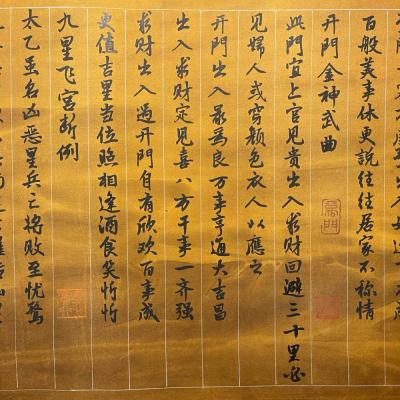 百般美事休更說往往居家不稱情
景門
开門金神武曲
此門宜上官見貴出入求財回避三十里必
見婦人或穿顏色衣人以應之
开門出入最為良万事亨通大吉昌
出入求财定見喜八方干事一齐强
求财出入過开門自有欣欢百事成
更值吉星当位照相逢酒食笑忻忻
九星飞宫断例
太乙虽名凶恶星兵亡将败至忧驚